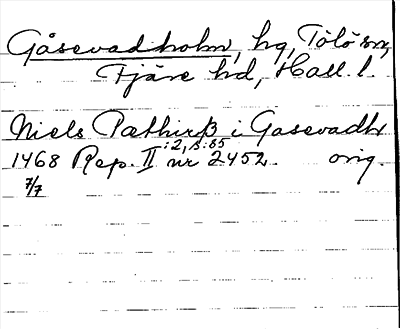 Gåsevadholm, hg, Tölö sn,
Fjäre hd, Hall. l.
Niels Pæthirß i Gasevadh
:2, s:65
1468 Rep. II nr 2452. orig.
7/7